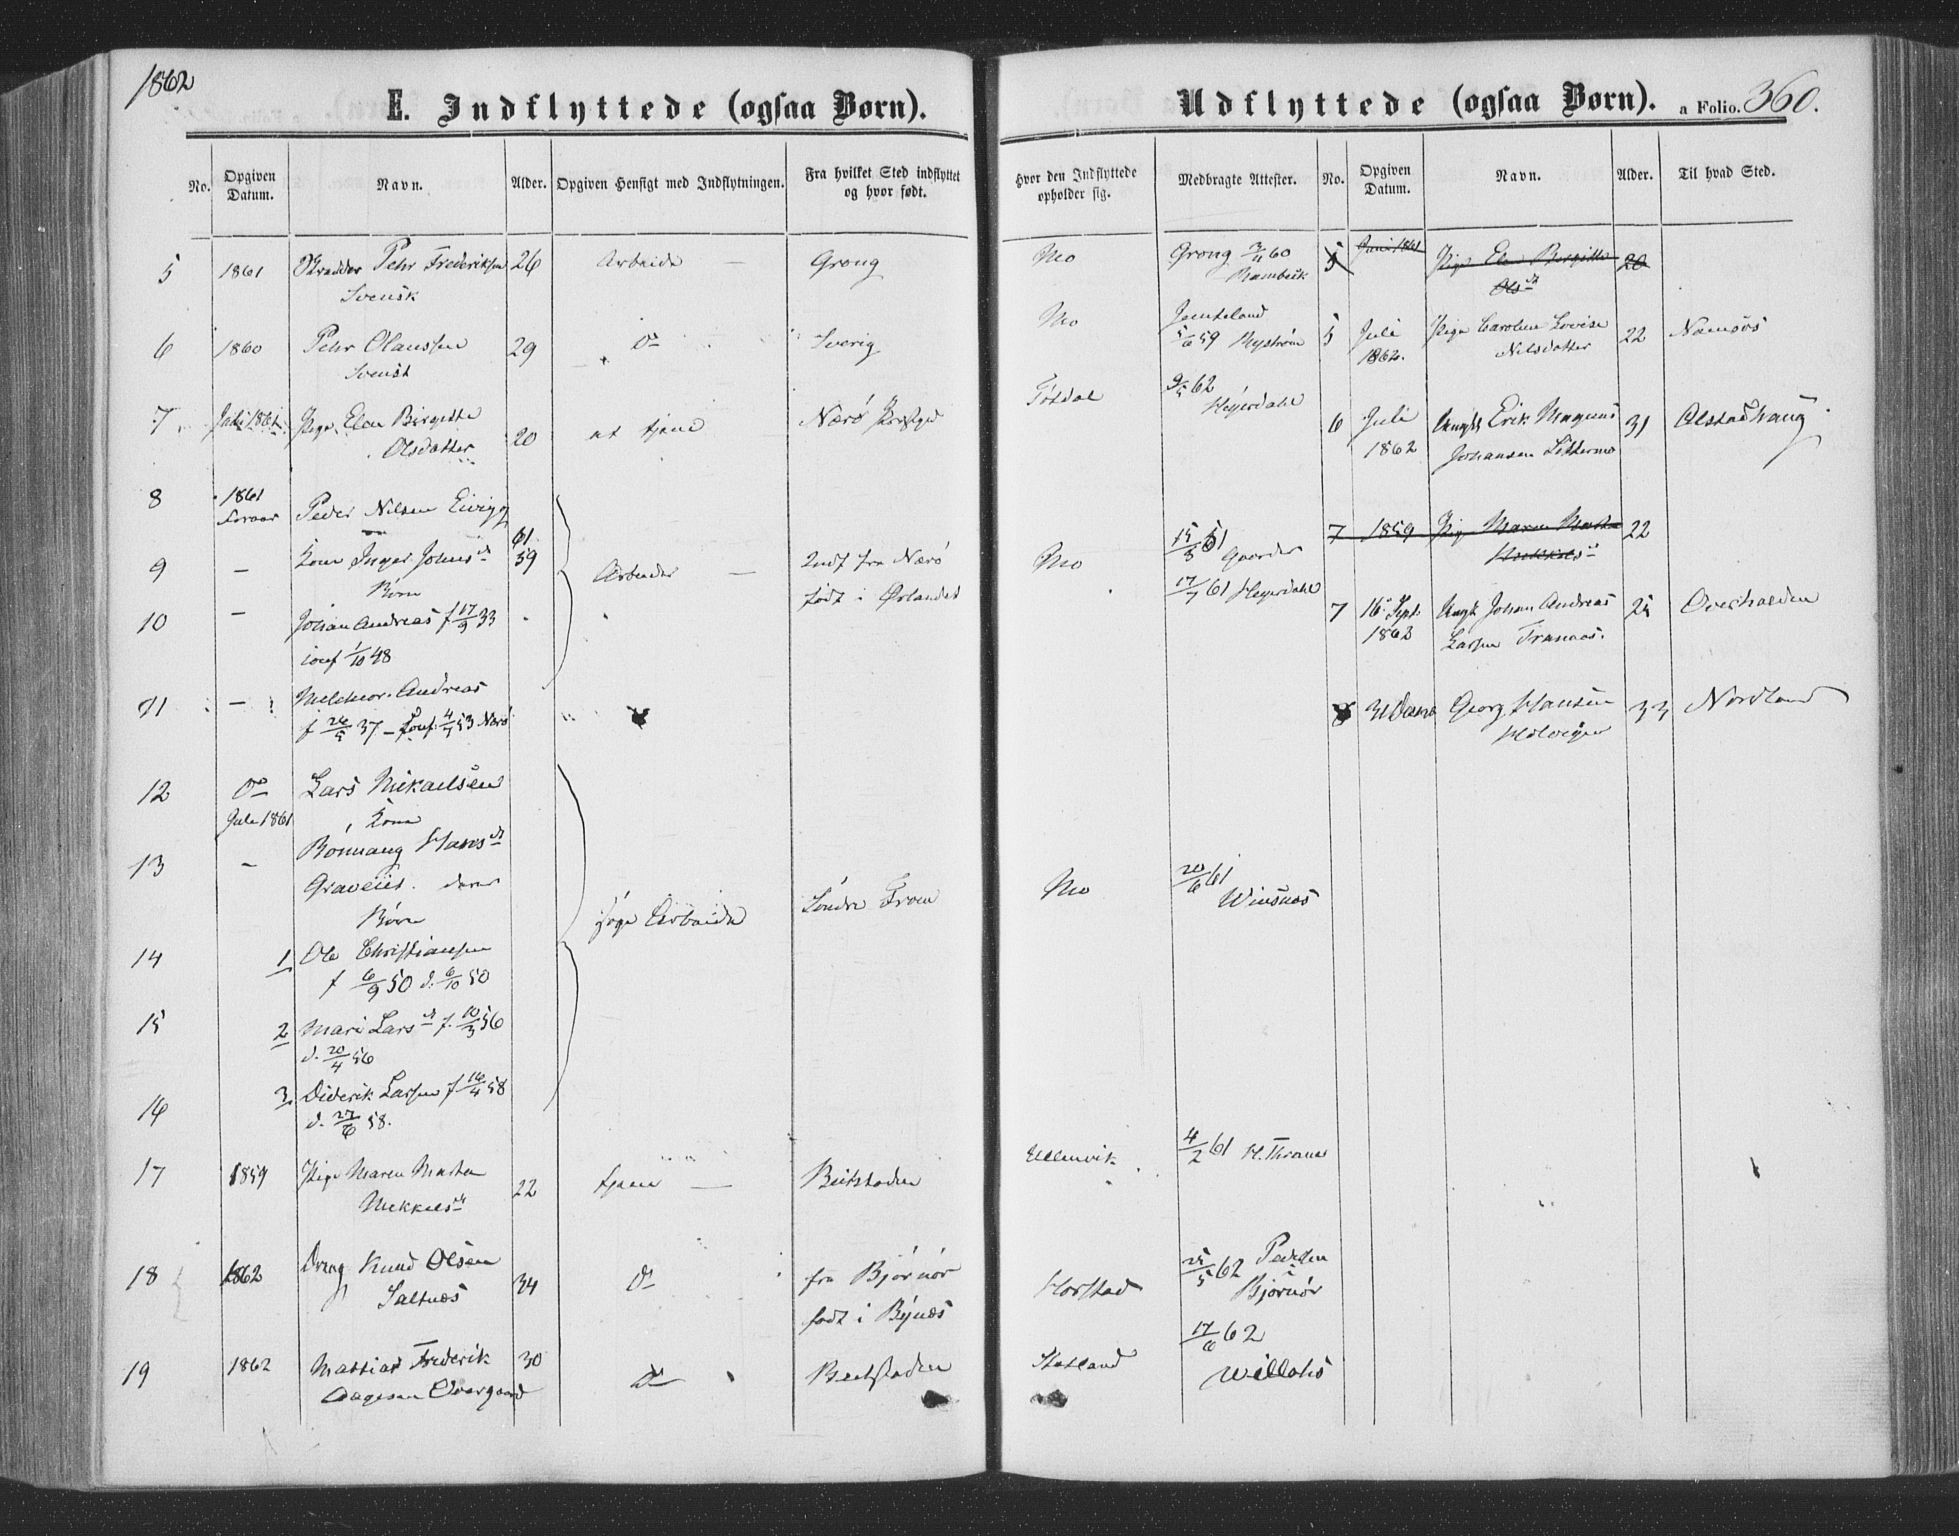 1862
E. Indflyttede (ogsaa Børn).
No. Opgiven Datum. Navn. Alder. Opgiven Hensigt med Indflytningen. Fra hvilket Sted indflyttet og hvor født.
5 1861 Pehr Frederiksen 26 Arbeide — Grong
Svensk
6 1860 Pehr Olaussen 29 Do Sverig
Svensk
7 Juli 1861 Pige Elen Birgitte 20 at tjene Nærø Prstgd
Olsdatter
8 1861 Foraar Peder Nilsen 61
9 — Kone Inger Johns d 59 Arbeider — Indf fra Nærø
Børn født i Ørlandet
10 — Johan Andreas f 17/9 33
conf 1/10 48
11 — Melchior Andreas
f 26/5 37 — Conf. 4/7 53 Nærø
12 Do Lars Mikaelsen
Juli 1861 Kone
13 — Rønnaug Hans d
Graveiet. deres
Børn søge Arbeide Søndre Fron
14 1 Ole Christiansen
f 6/9 50 d. 6/10 50
15 2 Mari Lars d f. 10/3 56
d. 20/4 56
16 3. Diderik Larsen f 16/4 58
d. 27/6 58.
17 1859 Pige Maren Marta 22 tjene — Beitstaden
Mekkels d
18 1862 Dreng Knud Olsen 34 Do fra Bjørnør
Saltnes født i Bynæs
19 1862 Mattias Frederik 30 Do Beitstaden
Aagesen Overgaard
Udflyttede (ogsaa Børn). a Folio. 360.
Hvor den Indflyttede opholder sig. Medbragte Attester. No. Opgiven Datum. Navn. Alder. Til hvad Sted.
Mo Grong 7/11 60 5 Juni 1861 Pige Elen Birgitte 20
Rambech Ols d
Mo Jemteland
5/6 59 Nyström 5 Juli 1862. Pige Caroline Lovise 22 Namsos
Nilsdatter
9/5 62
Heyerdahl
6 Juli 1862 Ungk Erik Magnus 31 Alstadhaug
Johansen
15/5 61 Gaarder 7 1859 Pige Maren Marta 22
Mekkels d
Mo 17/7 61 Heyerdahl
7 16 Sept. 1862 Ungk Johan Andreas 25 Overhalden
Larsen Trannes.
8 Georg Hansen 33 Nordland
Mo 20/6 61
Winsnes
4/2 61 H. Thrane
25/5 62 Peddersen
Horstad i Bjørnør
17/6 62
Statland Willohs